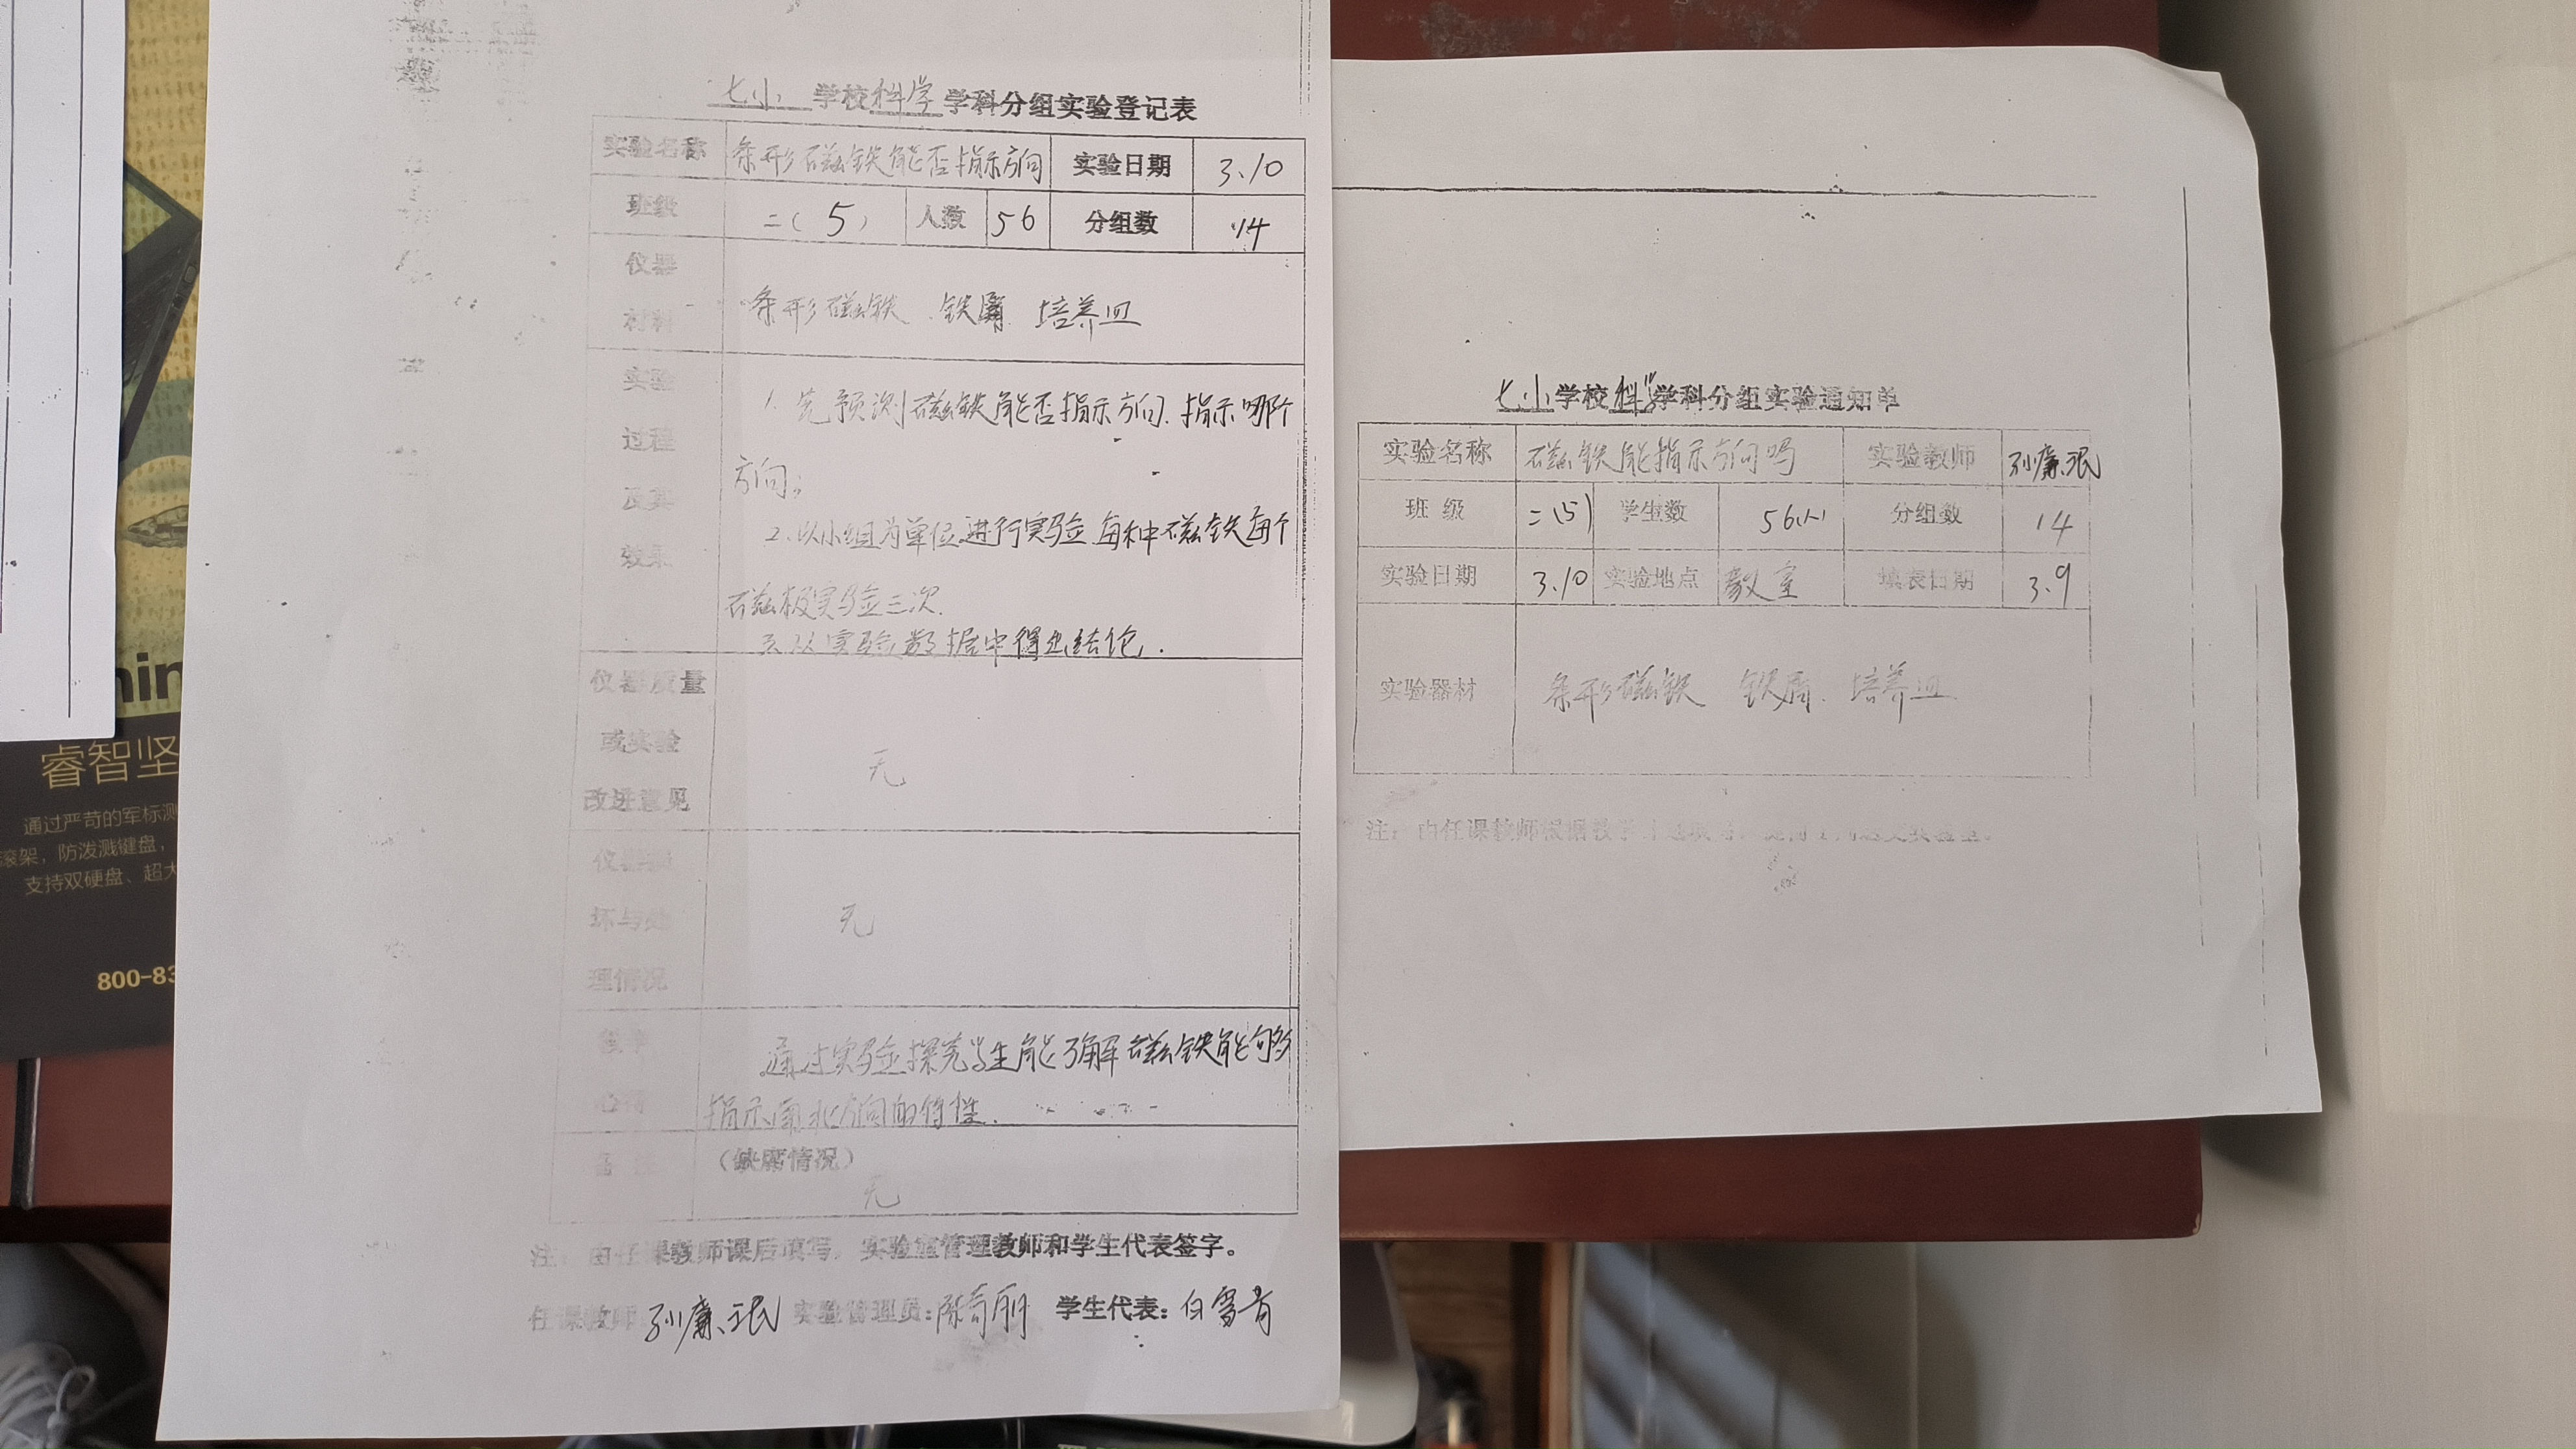 七小 学校科学学科分组实验登记表
实验名称 条形磁铁能否指示方向 实验日期 3.10
班级 二(5) 人数 56 分组数 14
仪器
材料
条形磁铁 铁屑 培养皿
实验
过程
及其
效果
1. 先预测磁铁能否指示方向.指示哪个
方向;
2.以小组为单位进行实验.每种磁铁每个
磁极实验三次.
3.从实验数据中得出结论.
仪器质量
或实验
改进意见
无
坏与处
理情况
无
通过实验探究学生能了解磁铁能够
指示南北方向的特性.
备
(缺席情况)
无
注:由任课教师课后填写,实验室管理教师和学生代表签字。
任课教师 孙 实验管理员: 学生代表:白雪
七小学校科学学科分组实验通知单
实验名称 磁铁能指示方向吗 实验教师 孙
班 级 二(5) 学生数 56(人) 分组数 14
实验日期 3.10 实验地点 教室 填表日期 3.9
实验器材 条形磁铁 铁屑. 培养皿
注:由任课教师根据教学
min
睿智坚
通过严苛的军标测
滚架,防泼溅键盘,
支持双硬盘、超大
800-83